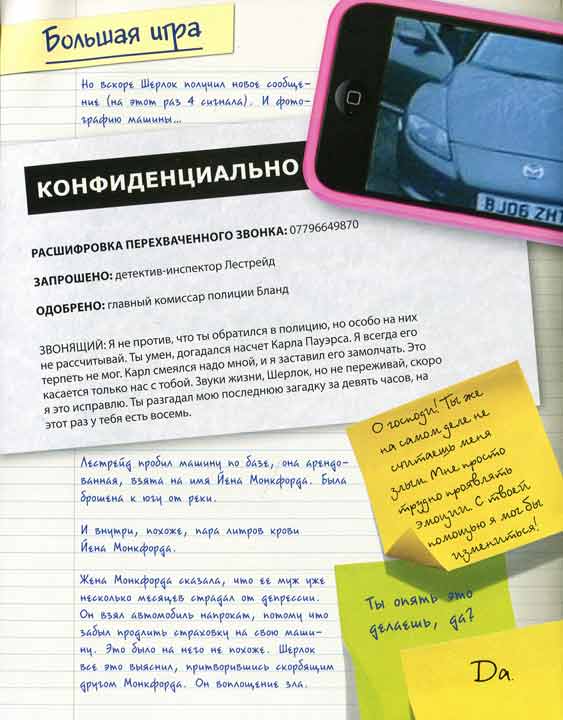 Большая игра
Но вскоре Шерлок получил новое сообще-
ние (на этот раз 4 сигнала). И фото-
графию машины...
BJ06 ZHT
КОНФИДЕНЦИАЛЬНО
РАСШИФРОВКА ПЕРЕХВАЧЕННОГО ЗВОНКА: 07796649870
ЗАПРОШЕНО: детектив-инспектор Лестрейд
ОДОБРЕНО: главный комиссар полиции Бланд
ЗВОНЯЩИЙ: Я не против, что ты обратился в полицию, но особо на них
не рассчитывай. Ты умен, догадался насчет Карла Пауэрса. Я всегда его
терпеть не мог. Карл смеялся надо мной, и я заставил его замолчать. Это
касается только нас с тобой. Звуки жизни, Шерлок, но не переживай, скоро
я это исправлю. Ты разгадал мою последнюю загадку за девять часов, на
этот раз у тебя есть восемь.
О господи! Ты же
на самом деле не
считаешь меня
злым. Мне просто
трудно проявлять
эмоции. С твоей
помощью я мог бы
измениться!
Лестрейд пробил машину по базе, она арендо-
ванная, взята на имя Йена Монкфорда. Была
брошена к югу от реки.
И внутри, похоже, пара литров крови
Йена Монкфорда.
Жена Монкфорда сказала, что ее муж уже
несколько месяцев страдал от депрессии.
Он взял автомобиль напрокат, потому что
забыл продлить страховку на свою маши-
ну. Это было на него не похоже. Шерлок
все это выяснил, притворившись скорбящим
другом Монкфорда. Он воплощение зла.
Ты опять это
делаешь, да?
Да.